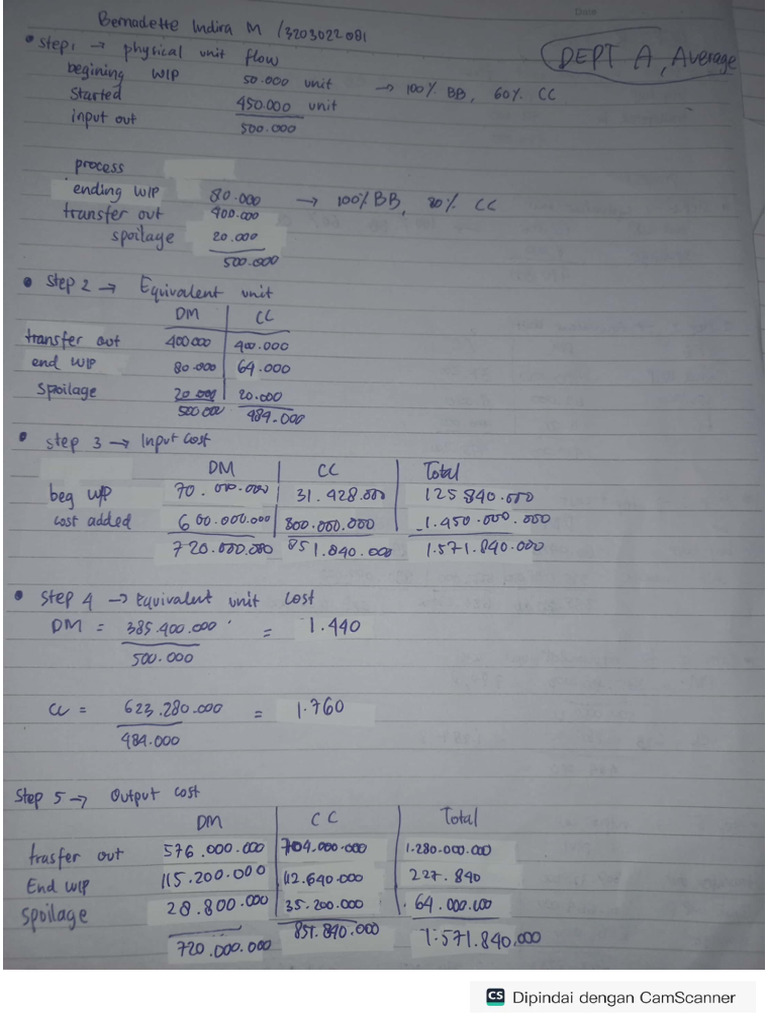 Date
Bernadette Indira M /3203022081
DEPT A, Average
• Step 1 → physical unit flow
begining WIP 50.000 unit → 100% BB, 60% CC
Started 450.000 unit
input out 500.000
process
ending WIP 80.000 → 100% BB, 80% CC
transfer out 400.000
spoilage 20.000
500.000
• Step 2 → Equivalent unit
DM CC
transfer out 400.000 400.000
end WIP 80.000 64.000
Spoilage 20.000 20.000
500.000 484.000
• step 3 → Input Cost
DM CC Total
beg WIP 70.000.000 31.428.000 125 840.000
cost added 600.000.000 800.000.000 1.450.000.000
720.000.000 851.840.000 1.571.840.000
• Step 4 → Equivalent unit cost
DM = 385.400.000 = 1.440
500.000
CC = 623.280.000 = 1.760
484.000
Step 5 → Output cost
DM CC Total
trasfer out 576.000.000 704.000.000 1.280.000.000
End WIP 115.200.000 112.640.000 227.840
spoilage 28.800.000 35.200.000 64.000.000
720.000.000 851.840.000 1.571.840.000
CS Dipindai dengan CamScanner